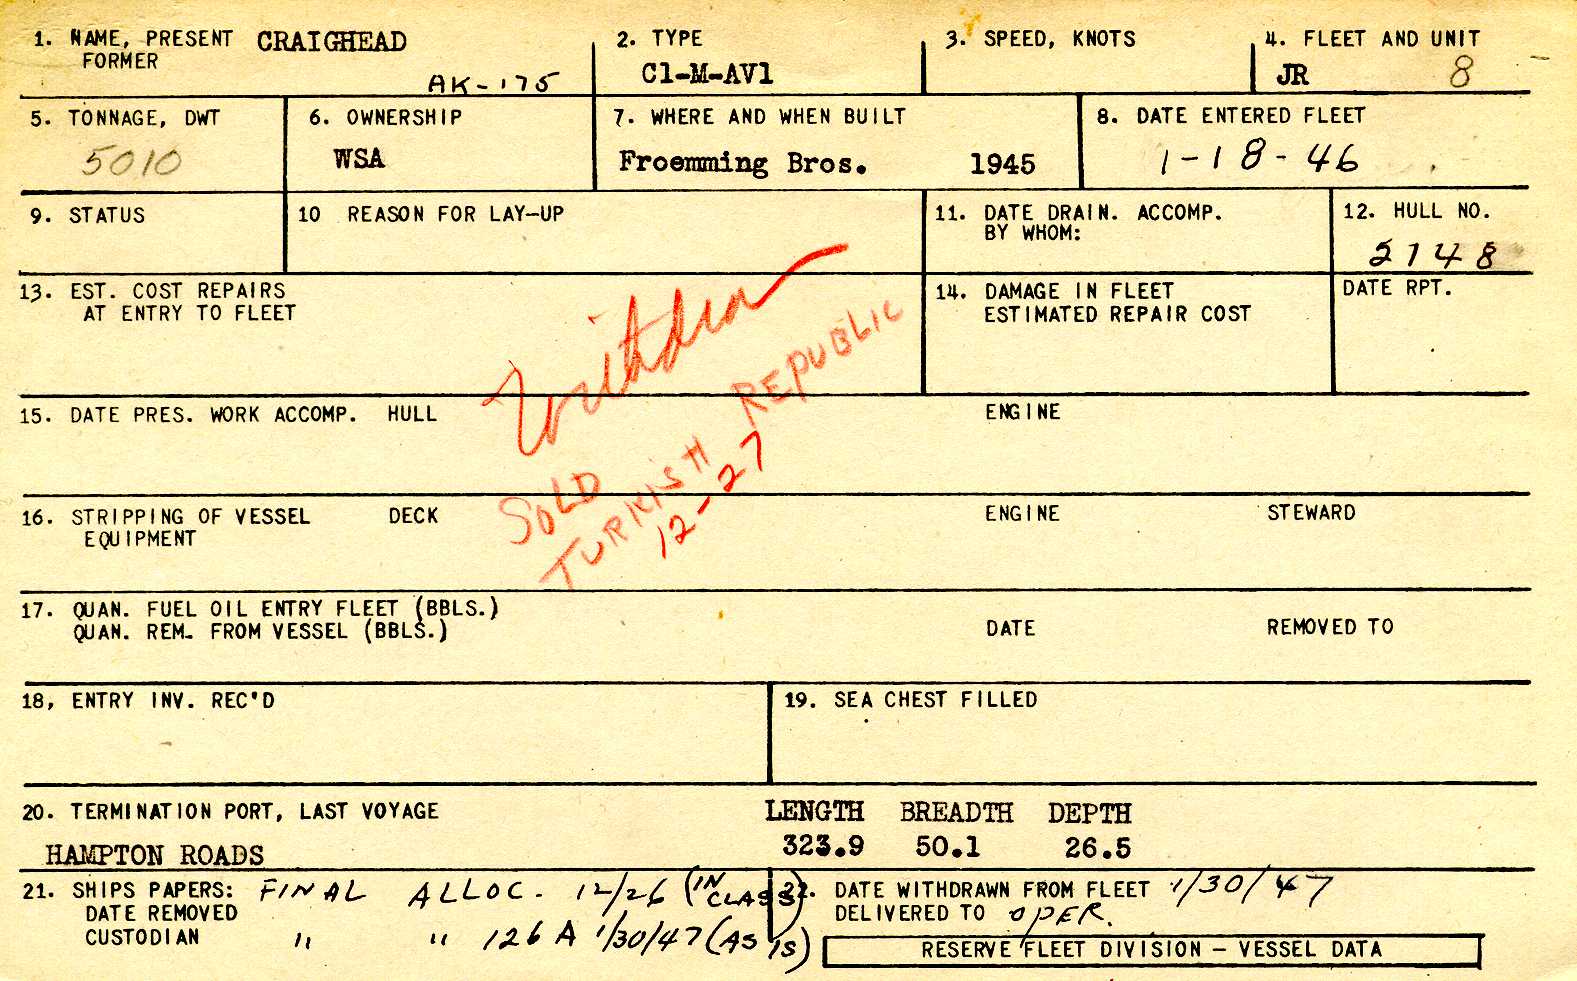 1. NAME, PRESENT CRAIGHEAD
FORMER
AK-175
2. TYPE
C1-M-AV1
3. SPEED, KNOTS
4. FLEET AND UNIT
JR 8
5. TONNAGE, DWT
5010
6. OWNERSHIP
WSA
7. WHERE AND WHEN BUILT
Froemming Bros. 1945
8. DATE ENTERED FLEET
1-18-46
9. STATUS
10 REASON FOR LAY-UP
11. DATE DRAIN. ACCOMP.
BY WHOM:
12. HULL NO.
2148
13. EST. COST REPAIRS
AT ENTRY TO FLEET
14. DAMAGE IN FLEET
ESTIMATED REPAIR COST
DATE RPT.
Withdrawn
SOLD
TURKISH REPUBLIC
12-27
15. DATE PRES. WORK ACCOMP. HULL ENGINE
16. STRIPPING OF VESSEL DECK ENGINE STEWARD
EQUIPMENT
17. QUAN. FUEL OIL ENTRY FLEET (BBLS.)
QUAN. REM. FROM VESSEL (BBLS.) DATE REMOVED TO
18, ENTRY INV. REC'D
19. SEA CHEST FILLED
20. TERMINATION PORT, LAST VOYAGE
HAMPTON ROADS
LENGTH BREADTH DEPTH
323.9 50.1 26.5
21. SHIPS PAPERS: FINAL ALLOC. 12/26 (IN CLASS)
DATE REMOVED
CUSTODIAN " " 126A 1/30/47 (AS IS)
22. DATE WITHDRAWN FROM FLEET 1/30/47
DELIVERED TO OPER.
RESERVE FLEET DIVISION - VESSEL DATA